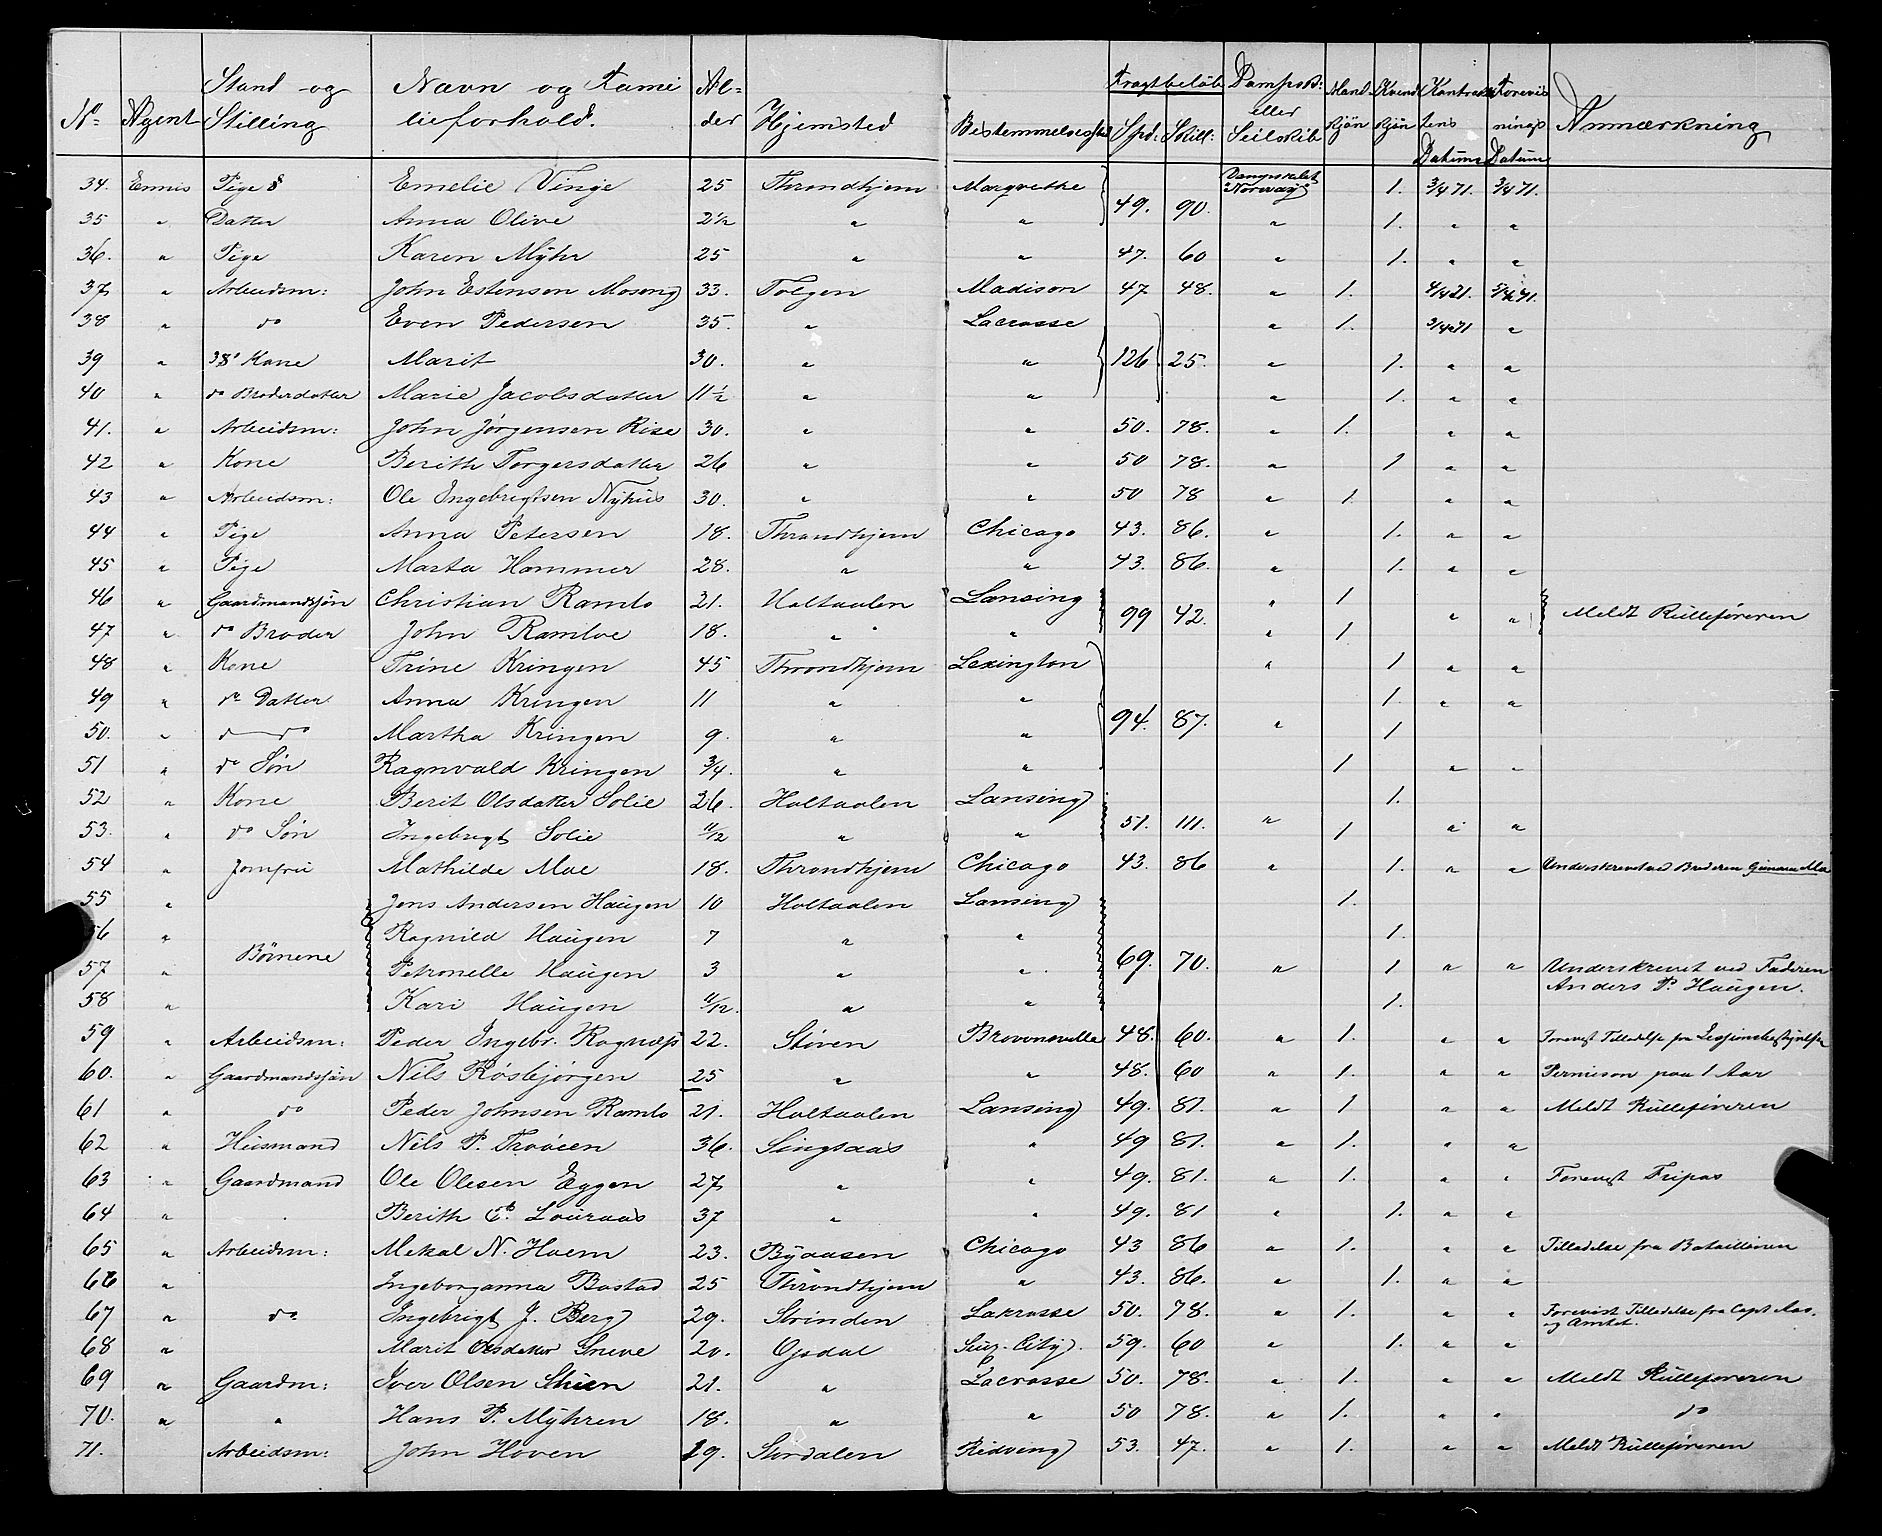 No. | Agent | Stand og Stilling | Navn og Familieforhold. | Alder | Hjemsted | Bestemmelsessted | Fragtbeløb Spd: | Skill: | Dampsk: eller Seilskib | Mandkjøn | Kvindkjøn | Kontraktens Datum | Forevisnings Datum | Anmærkning
34. | Ennis | Pige & | Emelie Vinje | 25 | Throndhjem | Margrethe | 49. | 90. | Dampskibet "Norway" | | 1. | 3/4 71. | 3/4 71.
35 | " | Datter | Anna Olive | 2 1/2 | " | " | | | " | | 1. | " | "
36. | " | Pige | Karen Myhr | 25 | " | " | 47. | 60 | " | | 1. | " | "
37 | " | Arbeidsm: | John Estensen Moseng | 33. | Tolgen | Madison | 47 | 48. | " | 1. | | 4/4 71. | 5/4 71.
38 | " | do | Even Pedersen | 35. | " | Lacrosse | | | " | 1. | | 3/4 71 | "
39 | " | 38' Kone | Marit | 30. | " | " | 126 | 25. | " | | 1. | " | "
40 | " | do Broderdatter | Marie Jacobsdatter | 11 1/2 | " | " | | | " | | 1. | " | "
41. | " | Arbeidsm: | John Jørgensen Rise | 30. | " | " | 50. | 78. | " | 1. | | " | "
42 | " | Kone | Berith Torgersdatter | 26 | " | " | 50 | 78. | " | | 1 | " | "
43 | " | Arbeidsm: | Ole Ingebrigtsen Nyhus | 30. | " | " | 50 | 78 | " | 1. | | " | "
44 | " | Pige | Anna Petersen | 18. | Throndhjem | Chicago | 43. | 86. | " | | 1. | " | "
45 | " | Pige | Marta Hammer | 28. | " | " | 43. | 86. | " | | 1. | " | "
46 | " | Gaardmandssøn | Christian Ramlo | 21. | Holtaalen | Lansing | 99 | 42. | " | 1 | | " | " | Meldt Rulleføreren
47 | " | do Broder | John Ramloe | 18. | " | " | | | " | 1.
48 | " | Kone | Trine Kringen | 45 | Throndhjem | Lexington | | | " | | 1 | " | "
49 | " | do Datter | Anna Kringen | 11 | " | " | | | | | 1. | " | "
50. | " | do do | Martha Kringen | 9. | " | " | 94. | 87. | " | | 1
51 | " | do Søn | Ragnvald Kringen | 3/4. | " | " | | | | 1 | | " | "
52 | " | Kone | Berit Olsdatter Solie | 26. | Holtaalen | Lansing | | | | | 1.
53. | " | do Søn | Ingebrigt Solie | 11/12 | " | " | 51. | 111. | " | 1 | | " | "
54 | " | Jomfru | Mathilde Moe | 18. | Throndhjem | Chicago | 43. | 86 | " | | 1. | " | " | Underskrevet ved Broderen Moe
55 | " | Børnene | Jens Andersen Haugen | 10 | Holtaalen | Lansing | | | | 1.
56 | " | | Ragnild Haugen | 7 | " | " | | | | | 1.
57 | " | | Petronelle Haugen | 3 | " | " | 69. | 70. | " | | 1 | " | " | Underskrevet ved Faderen
58 | " | | Kari Haugen | 11/12. | " | " | | | | | 1. | | | Anders P. Haugen.
59 | " | Arbeidsm: | Peder Ingebr. | 22. | Støren | Brovonsville | 48. | 60. | " | 1. | | " | " | Forevist Tilladelse fra Sessionsbestyrelsen
60. | " | Gaardmandssøn | Nils Røsbjørgen | 25 | " | " | 48. | 60 | " | 1. | | " | " | Permison paa 1 Aar
61 | " | do | Peder Johnsen Ramlo | 21. | Holtaalen | Lansing | 49. | 81. | " | 1 | | " | " | Meldt Rulleføreren
62 | " | Husmand | Nils P. Trøien | 36. | Singsaas | " | 49 | 81. | " | 1. | | " | "
63 | " | Gaardmand | Ole Olesen Eggen | 27 | " | " | 49. | 81. | " | 1. | | " | " | Forevist Fripas
64 | " | | Berith Louraas | 37 | " | " | 49. | 81 | " | | 1. | " | "
65 | " | Arbeidsm: | Mekal N. Hoem | 23. | Byaasen | Chicago | 43 | 86 | " | 1. | | " | " | Tilladelse fra Batallionen
66 | " | | Ingeborganna Bostad | 25 | Throndhjem | " | 43. | 86. | " | | 1. | " | "
67 | " | do. | Ingebrigt J. Berg | 29. | Strinden | Lacrosse | 50. | 78. | " | 1. | | " | " | Forevist Tilladelse fra Capt Aas. og Amtet.
68 | " | | Marit Olsdatter Sneve | 20. | Opdal | City. | 59. | 60 | " | | 1. | " | "
69 | " | Gaardm: | Iver Olsen | 21. | " | Lacrosse | 50. | 78. | " | 1. | | " | " | Meldt Rulleføreren
70. | " | " | Hans P. Myhren | 18. | " | " | 50 | 78. | " | 1. | | " | " | do
71. | | Arbeidsm: | John Hoven | 29. | Stordalen | Ridveng | 53. | 47. | " | 1. | | " | " | Meldt Rulleføreren